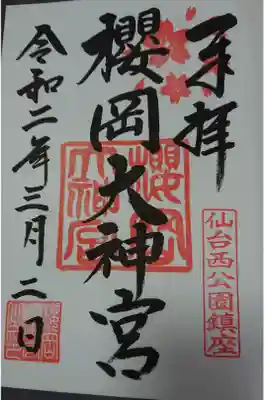 奉拝
櫻岡大神宮
仙台西公園鎮座
令和二年三月二日
櫻岡大神宮